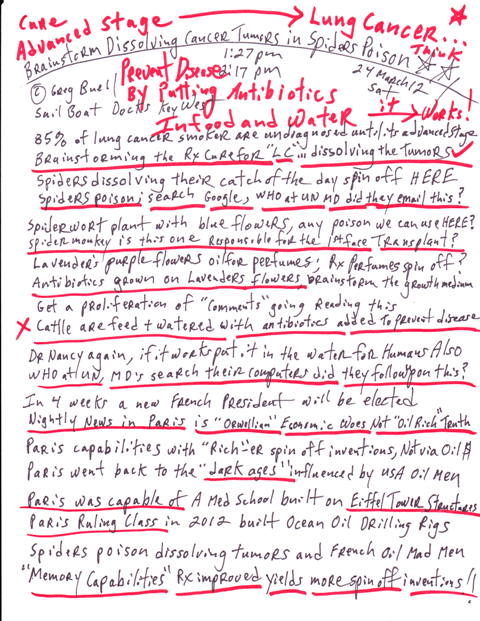 Cure
Advanced Stage → Lung Cancer...
Brainstorm Dissolving Cancer Tumors in Spiders Poison
Think
1:27 pm
2:17 pm
24 March 12
Sat
© Greg Buell
Sail Boat Docks Key West
Prevent Diseases
By Putting Antibiotics
In food and Water it → Works!
85% of lung cancer smoker are undiagnosed until its advanced stage
Brainstorming the Rx Cure for "LC"... dissolving the Tumors
Spiders dissolving their catch of the day spin off HERE
Spiders poison; search Google, WHO at UN MD did they email this?
Spiderwort plant with blue flowers, any poison we can use HERE?
Spider monkey is this one Responsible for the 1st face Transplant?
Lavender's purple flowers oil for perfumes; Rx Perfumes spin off?
Antibiotics grown on Lavenders flowers, brainstorm the growth medium
Get a proliferation of "comments" going Reading this
X Cattle are feed + watered with antibiotics added to prevent disease
Dr Nancy again, if it works put it in the water for Humans Also
WHO at UN, MD's search their computers did they follow upon this?
In 4 weeks a new French President will be elected
Nightly News in Paris is "Orwellian" Economic Woes Not "Oil Rich" Truth
Paris capabilities with "Rich"-er spin off inventions, Not via Oil $
Paris went back to the "dark ages" influenced by USA Oil Men
Paris was capable of A Med School built on Eiffel Tower Structures
Paris Ruling Class in 2012 built Ocean Oil Drilling Rigs
Spiders poison dissolving tumors and French Oil Mad Men
"Memory Capabilities" Rx improved yields more spin off inventions!!